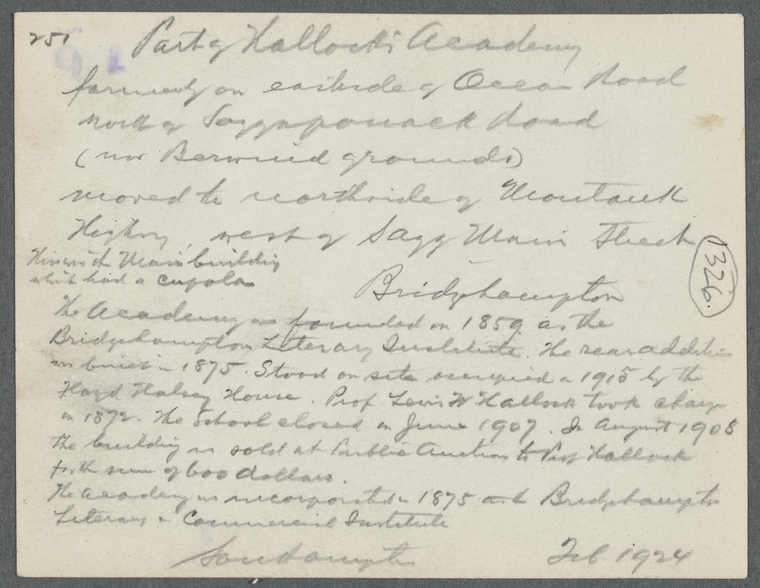 251 Part of Hallock's Academy
formerly on eastside of Ocean Road
north of Sagaponack Road
(now Berwind grounds)
moved to northside of Montauk
Highway, west of Sagg Main Street
1326.
This is the Main building
which had a cupola
Bridgehampton
The Academy was founded in 1859 as the
Bridgehampton Literary Institute. The rear addition
was built in 1875. Stood on site occupied in 1915 by the
Halsey House. Prof. Lewis W Hallock took charge
in 1872. The School closed in June 1907. In August 1908
the building was sold at Public Auction to Prof Hallock
for the sum of 600 dollars.
The academy was incorporated in 1875 as the Bridgehampton
Literary & Commercial Institute
Southampton Feb 1924